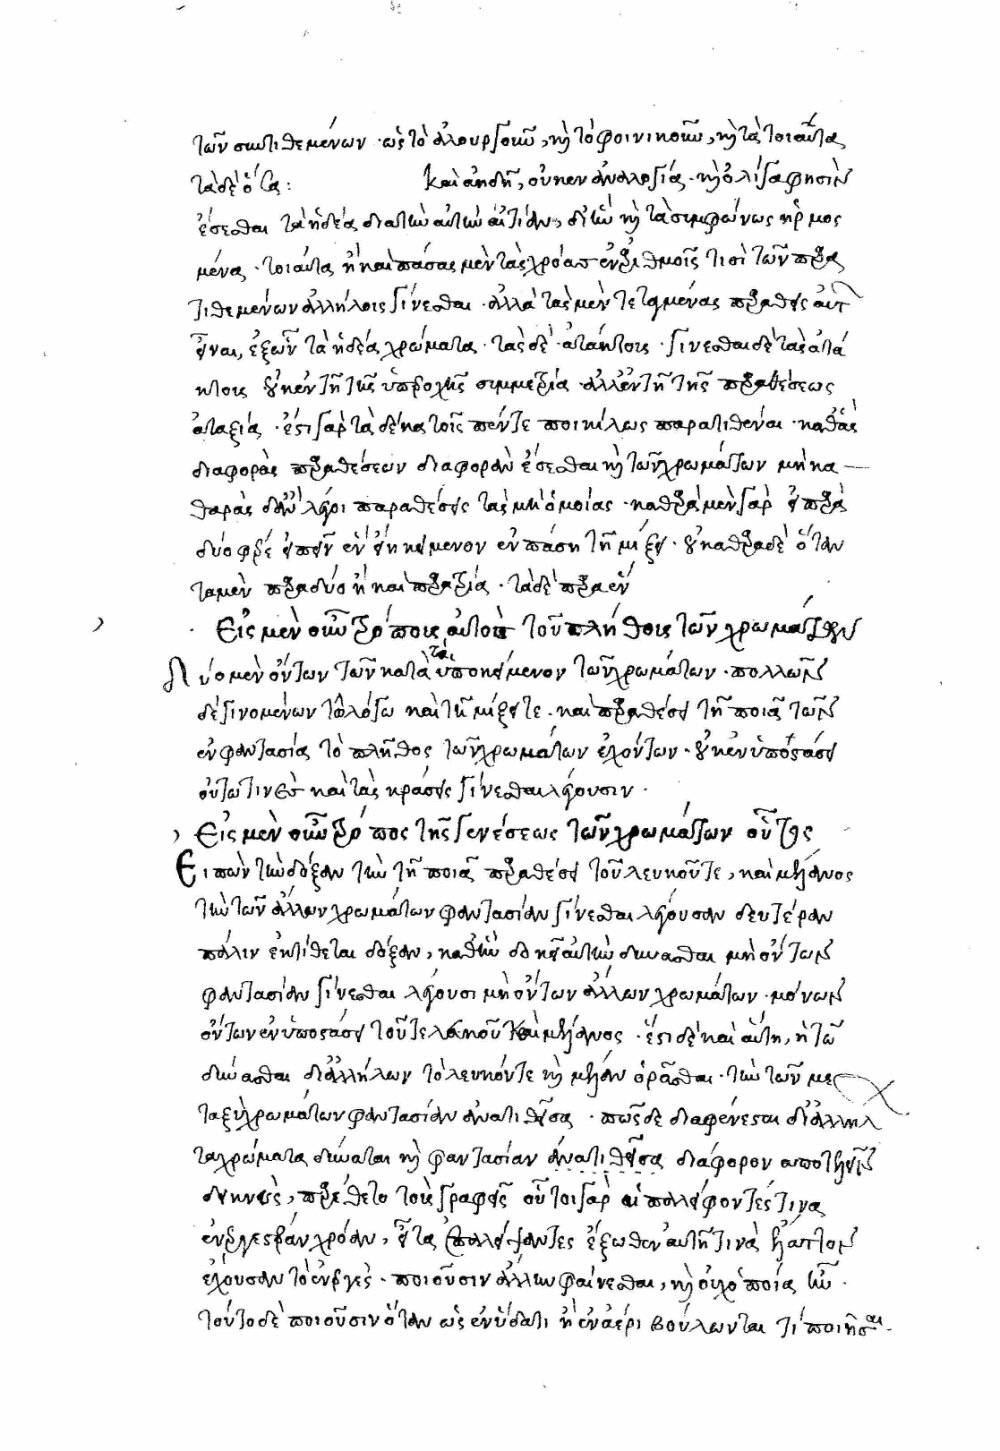 τῶν συντιθεμένων · ὡς τὸ ἁλουργὸν, καὶ τὸ φοινικοῦν, καὶ τὰ τοιαῦτα
τὰ δὲ ὄντα: καὶ ἀηδῆ, οὐκ ἐν ἀναλογία · καὶ ὀλίγα φησὶν
ἔσεσθαι τὰ ἡδέα διὰ τὴν αὐτὴν αἰτίαν, δι' ἣν καὶ τὰ συμφώνως ἡρμος
μένας · τοιαῦτα ἢ καὶ πάσας μὲν τὰς χρόας ἐν ἀριθμοῖς τισὶ τῶν παρα
τιθεμένων ἀλλήλοις γίνεσθαι · ἀλλὰ τὰς μὲν τεταγμένας παραθέσεις αὐτῶν
εἶναι, ἐξ ὧν τὰ ἡδέα χρώματα · τὰς δὲ ἀτάκτους · γίνεσθαι δὲ τὰς ἀτά
κτους οὐκ ἐν τῇ τῆς ὑπεροχῆς συμμετρία ἀλλ' ἐν τῇ τῆς παραθέσεως
ἀταξία · ἔστι γὰρ τὰ δέκα τοῖς πέντε ποικίλως παρατιθέναι · καθ' ἃς
διαφορὰς παραθέσεων διαφορὰν ἔσεσθαι καὶ τῶν χρωμάτων μὴ κα
θαρὰς δ' ἂν λέγοι παραθέσεις τὰς μὴ ὁμοίας · καθαρὰ μὲν γὰρ
δύο φέρε εἰπεῖν ἓν ἐγκείμενον ἐν πάση τῇ μίξει · οὐ καθαρὰ δὲ ὅταν
τὰ μὲν παρὰ δύο ἢ καὶ παρὰ τρία · τὰ δὲ παρὰ ἕν
Εἷς μὲν οὖν τρόπος αὐτοῖς τοῦ πλήθους τῶν χρωμάτων
Δύο μὲν ὄντων τῶν κατὰ τὸ ὑποκείμενον τῶν χρωμάτων · πολλῶν
δὲ γινομένων τῷ λόγω καὶ τῇ μίξει τε · καὶ παραθέσει τῇ ποιᾷ τῶν
ἐν φαντασία τὸ πλῆθος τῶν χρωμάτων ἐχόντων · οὐκ ἐν ὑποστάσει
οὕτω τινὲς καὶ τὰς κράσεις γίνεσθαι λέγουσιν ·
Εἷς μὲν οὖν τρόπος τῆς γενέσεως τῶν χρωμάτων οὗτος
Εἰπὼν τὴν δόξαν τὴν τῇ ποιᾷ παραθέσει τοῦ λευκοῦ τε, καὶ μέλανος
τὴν τῶν ἄλλων χρωμάτων φαντασίαν γίνεσθαι λέγουσαν δευτέραν
πάλιν ἐκτίθεται δόξαν, καθ' ἣν δοκεῖ αὐτὴν δύνασθαι μὴ ὄντων
φαντασίαν γίνεσθαι λέγουσι μὴ ὄντων ἄλλων χρωμάτων · μόνων
ὄντων ἐν ὑποστάσει τοῦ τε λευκοῦ καὶ μέλανος · ἔστι δὲ καὶ αὕτη, ἡ τῷ
δύνασθαι δι' ἀλλήλων τὸ λευκόν τε καὶ μέλαν ὁρᾶσθαι · τὴν τῶν με
ταξὺ χρωμάτων φαντασίαν ἀνατιθεῖσα · πῶς δὲ διαφαίνεσθαι δι' ἀλλήλ
τὰ χρώματα δύναται καὶ φαντασίαν ἀνατιθεῖσα διάφορον ἀποτελεῖν
δεικνὺς, παρέθετο τοὺς γραφεῖς οὗτοι γὰρ ἀπαλείφοντές τινα
ἐνεργεστέραν χρόαν, εἶτα ἐπαλείφοντες ἔξωθεν αὐτῇ τινὰ ἧττον
ἔχουσαν τὸ ἐνεργὲς · ποιοῦσιν ἄλλην φαίνεσθαι, καὶ οὐχ ὁποία ἦν ·
τοῦτο δὲ ποιοῦσιν ὅταν ὡς ἐν ὕδατι ἢ ἐν ἀέρι βούλωνταί τι ποιῆσαι ·